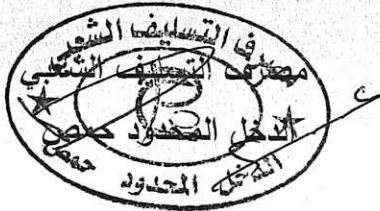 مصرف التسليف الشعبي
مصرف التسليف الشعبي
الدخل المحدود حمص
حمص
الدخل المحدود